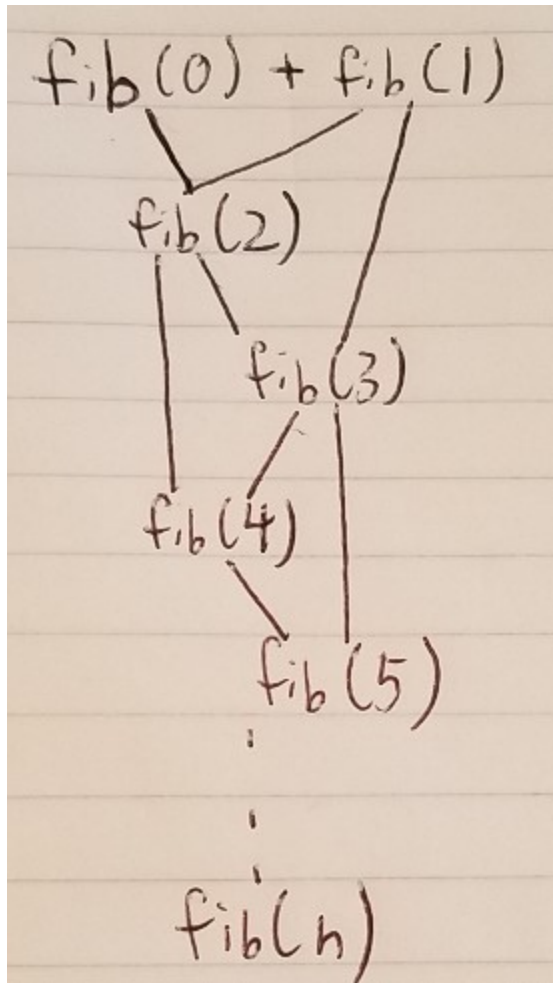 fib(0) + fib(1)
fib(2)
fib(3)
fib(4)
fib(5)
fib(n)